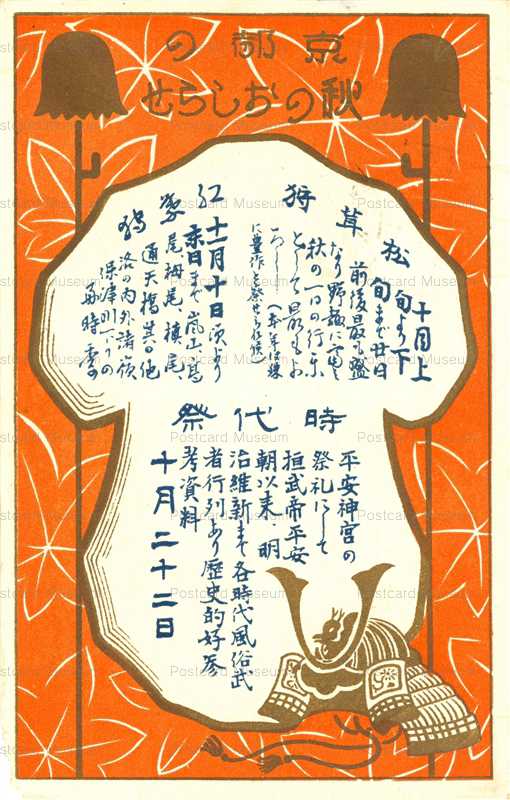 京都の
秋のおしらせ
松茸狩
十月上
旬より下
旬まで廿日
前後最も盛
なり野趣に富む
秋の一日の行楽
として最もよ
ろし
紅葉狩
十一月十日頃より
末日まで嵐山、高
尾、栂尾、槙尾、
通天橋其の他
洛の内外諸嶺
保津川下りの
好時季
時代祭
平安神宮の
祭礼にして
桓武帝平安
朝以来明
治維新まで各時代風俗武
者行列あり歴史的好参
考資料
十月二十二日
Postcard Museum